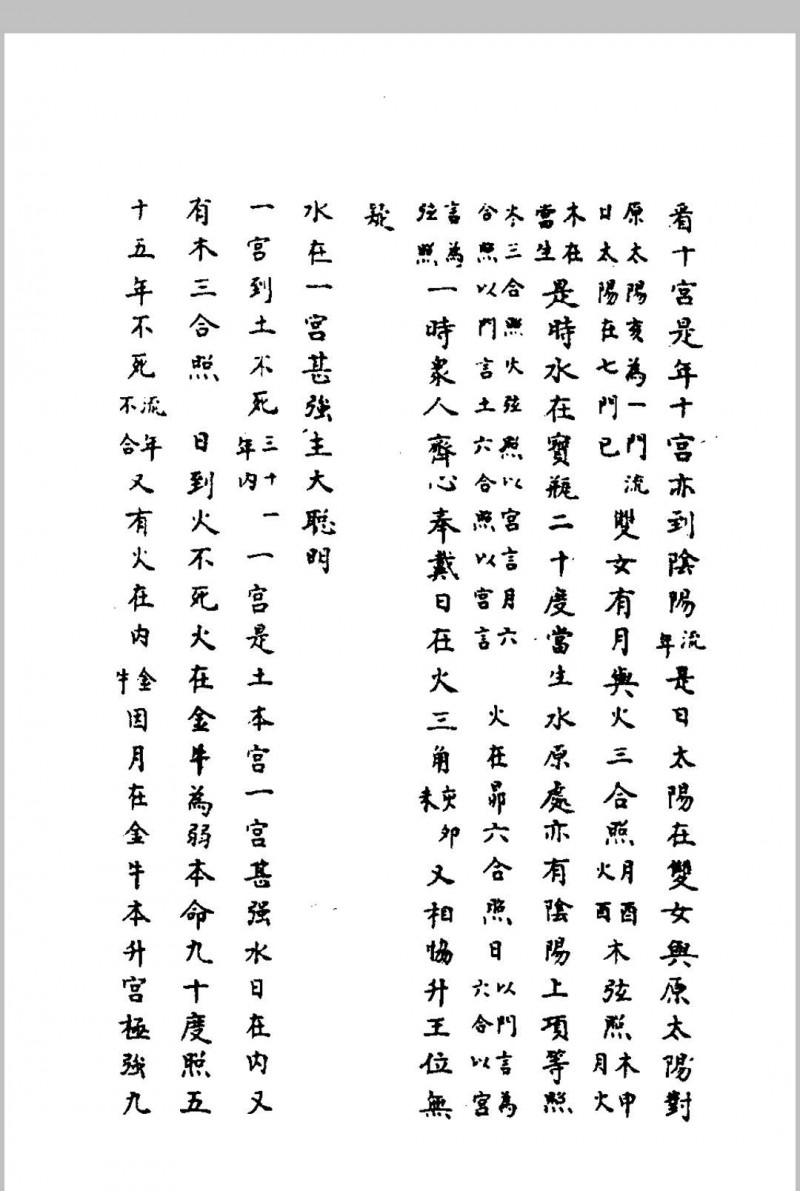 看十宮是年十宮亦到陰陽流年是日太陽在雙女與原太陽對
原太陽亥為一門流日太陽在七門巳雙女有月與火三合照月酉火酉木弦照木申月火
木在當生是時水在寶瓶二十度當生水原處亦有陰陽上項等照
岑三合照火弦照以宮言月六合照以門言土六合照以宮言 火在昴六合照日以門言為六合以宮
言為弦照一時衆人齊心奉戴日在火三角亥卯未又相協升王位無
疑
水在一宮甚強主大聰明
一宮到土不死三十一年內一宮是土本宮一宮甚强水日在內又
有木三合照 日到火不死火在金牛為弱本命九十度照五
十五年不死流年不合又有火在內金牛因月在金牛本升宮極強九